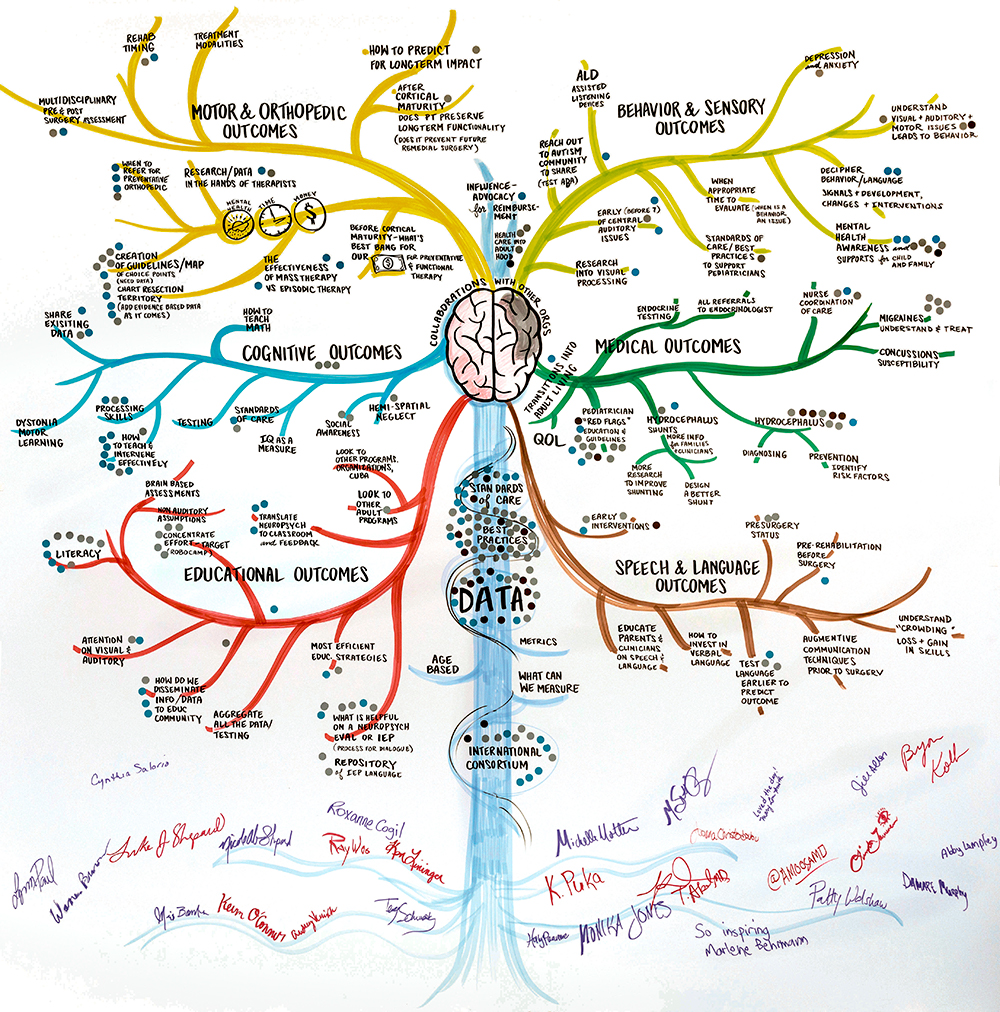 REHAB
TIMING
TREATMENT
MODALITIES
HOW TO PREDICT
FOR LONGTERM IMPACT
MULTIDISCIPLINARY
PRE & POST
SURGERY ASSESSMENT
MOTOR & ORTHOPEDIC
OUTCOMES
AFTER
CORTICAL
MATURITY
DOES PT PRESERVE
LONGTERM FUNCTIONALITY
(DOES IT PREVENT FUTURE
REMEDIAL SURGERY)
WHEN TO
REFER FOR
PREVENTATIVE
ORTHOPEDIC
RESEARCH/DATA
IN THE HANDS OF THERAPISTS
MENTAL
HEALTH
TIME
MONEY
$
CREATION
OF GUIDELINES/MAP
OF CHOICE POINTS
(NEED DATA)
CHART RESECTION
TERRITORY
(ADD EVIDENCE BASED DATA
AS IT COMES)
THE
EFFECTIVENESS
OF MASS THERAPY
VS EPISODIC THERAPY
BEFORE CORTICAL
MATURITY-WHAT'S
BEST BANG FOR
OUR $ FOR PREVENTATIVE
& FUNCTIONAL
THERAPY
INFLUENCE-
ADVOCACY
for REIMBURSE-
MENT
HEALTH
CARE INTO
ADULT
HOOD
COLLABORATIONS WITH OTHER ORGS
BEHAVIOR & SENSORY
OUTCOMES
ALD
ASSISTED
LISTENING
DEVICES
DEPRESSION
and ANXIETY
UNDERSTAND
VISUAL + AUDITORY +
MOTOR ISSUES
LEADS TO BEHAVIOR
REACH OUT
TO AUTISM
COMMUNITY
TO SHARE
(TEST ADA)
DECIPHER
BEHAVIOR/LANGUAGE
SIGNALS + DEVELOPMENT,
CHANGES + INTERVENTIONS
WHEN
APPROPRIATE
TIME TO
EVALUATE (WHEN IS A
BEHAVIOR
AN ISSUE)
EARLY (BEFORE 7)
OF CENTRAL
AUDITORY
ISSUES
MENTAL
HEALTH
AWARENESS and
SUPPORTS for CHILD
AND FAMILY
STANDARDS OF
CARE/BEST
PRACTICES
TO SUPPORT
PEDIATRICIANS
RESEARCH
INTO VISUAL
PROCESSING
SHARE
EXISITING
DATA
HOW TO
TEACH
MATH
COGNITIVE OUTCOMES
DYSTONIA
MOTOR
LEARNING
PROCESSING
SKILLS
HOW
TO TEACH &
INTERVENE
EFFECTIVELY
TESTING
STANDARDS
OF CARE
IQ AS A
MEASURE
SOCIAL
AWARENESS
HEMI-SPATIAL
NEGLECT
MEDICAL OUTCOMES
ENDOCRINE
TESTING
ALL REFERRALS
TO ENDOCRINOLOGIST
NURSE
COORDINATION
OF CARE
MIGRAINES
UNDERSTAND & TREAT
CONCUSSIONS
SUSCEPTIBILITY
TRANSITIONS INTO
ADULT LIVING
QOL
PEDIATRICIAN
"RED FLAGS"
EDUCATION &
GUIDELINES
HYDROCEPHALUS
SHUNTS
MORE INFO
for FAMILIES
& CLINICIANS
MORE
RESEARCH
TO IMPROVE
SHUNTING
DESIGN
A BETTER
SHUNT
HYDROCEPHALUS
DIAGNOSING
PREVENTION
IDENTIFY
RISK FACTORS
BRAIN BASED
ASSESSMENTS
NON AUDITORY
ASSUMPTIONS
CONCENTRATE
EFFORT-TARGET
(ROBOCAMP)
LITERACY
TRANSLATE
NEUROPSYCH
TO CLASSROOM
and FEEDBACK
LOOK TO
OTHER PROGRAMS,
ORGANIZATIONS,
CUBA
LOOK TO
OTHER
ADULT
PROGRAMS
EDUCATIONAL OUTCOMES
ATTENTION
ON VISUAL &
AUDITORY
HOW DO WE
DISSEMINATE
INFO/DATA
TO EDUC
COMMUNITY
AGGREGATE
ALL THE DATA/
TESTING
MOST EFFICIENT
EDUC. STRATEGIES
WHAT IS HELPFUL
ON A NEUROPSYCH
EVAL OR IEP
(PROCESS FOR DIALOGUE)
REPOSITORY
OF IEP LANGUAGE
STANDARDS
of CARE
BEST
PRACTICES
DATA
METRICS
AGE
BASED
WHAT CAN
WE MEASURE
INTERNATIONAL
CONSORTIUM
EARLY
INTERVENTIONS
PRESURGERY
STATUS
PRE-REHABILITATION
BEFORE
SURGERY
SPEECH & LANGUAGE
OUTCOMES
EDUCATE
PARENTS &
CLINICIANS
ON SPEECH &
LANGUAGE
HOW TO
INVEST IN
VERBAL
LANGUAGE
TEST
LANGUAGE
EARLIER TO
PREDICT
OUTCOME
AUGMENTIVE
COMMUNICATION
TECHNIQUES
PRIOR TO SURGERY
UNDERSTAND
"CROWDING"
LOSS + GAIN
IN SKILLS
Cynthia Salorio
Roxanne Cogil
Luke J Shepard
Lynn Paul
Michelle
Jill Allen
Bryan
Kolb
K. Puka
@AMOOSAMD
Abby Lampley
MONIKA JONES
So inspiring
Marlene Behrmann